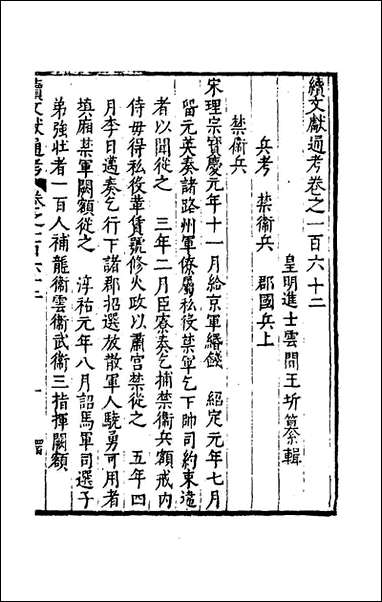 續文獻通考卷之一百六十二
皇明進士雲間王圻纂輯
兵考 禁衞兵 郡國兵上
禁衞兵
宋理宗寶慶元年十一月給京軍緡錢 紹定元年七月
留元英奏諸路州軍僚屬私役禁軍乞下帥司約束違
者以聞從之 三年二月臣寮奏乞補禁衞兵額戒內
侍毋得私役革賃號修火政以肅宮禁從之 五年四
月李日邁奏乞行下諸郡招選放散軍人驍勇可用者
填廂禁軍闕額從之 淳祐元年八月詔馬軍司選子
弟強壯者一百人補龍衞雲衞武衞三指揮闕額
續文獻通考 卷之一百六十二 一